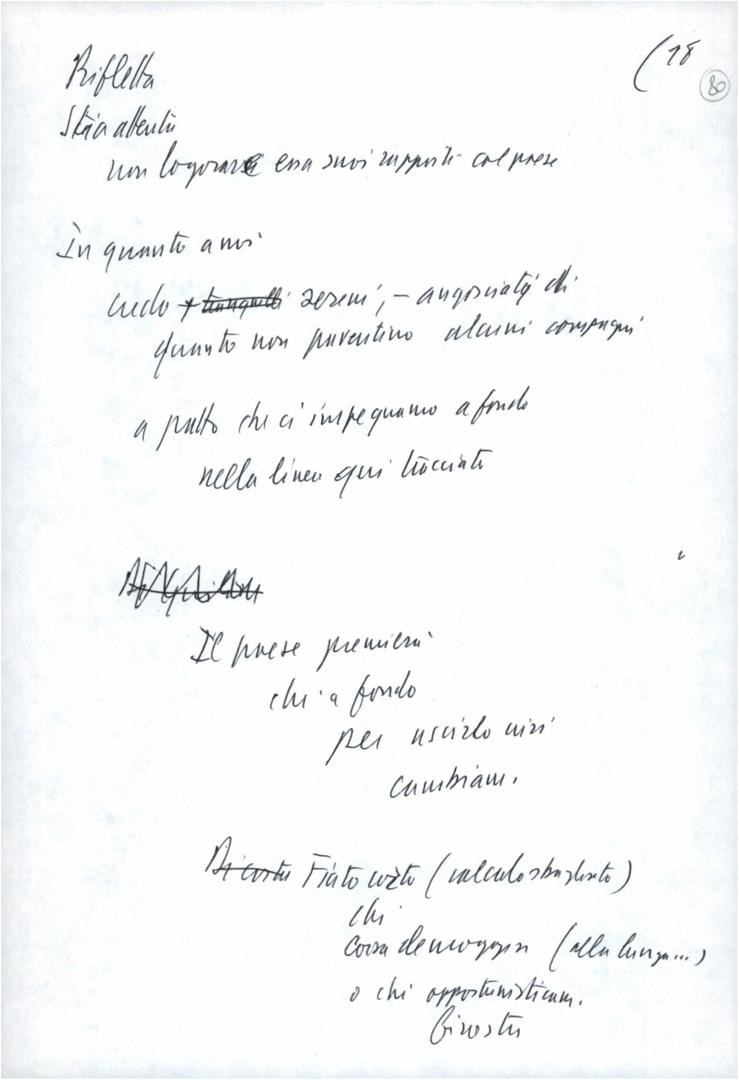 (18
80
Rifletta
Stia attenta
non logorare essa suoi rapporti col paese
In quanto a noi
credo + tranquilli sereni, – angosciati di
quanto non paventino alcuni compagni
a patto che ci impegniamo a fondo
nella linea qui tracciata
Il paese premierà
chi a fondo
per
cambiam.
Di costa Fiato corto (calcolo sbagliato)
chi
corsa demagogia (alla lunga...)
o chi opportunisticam.